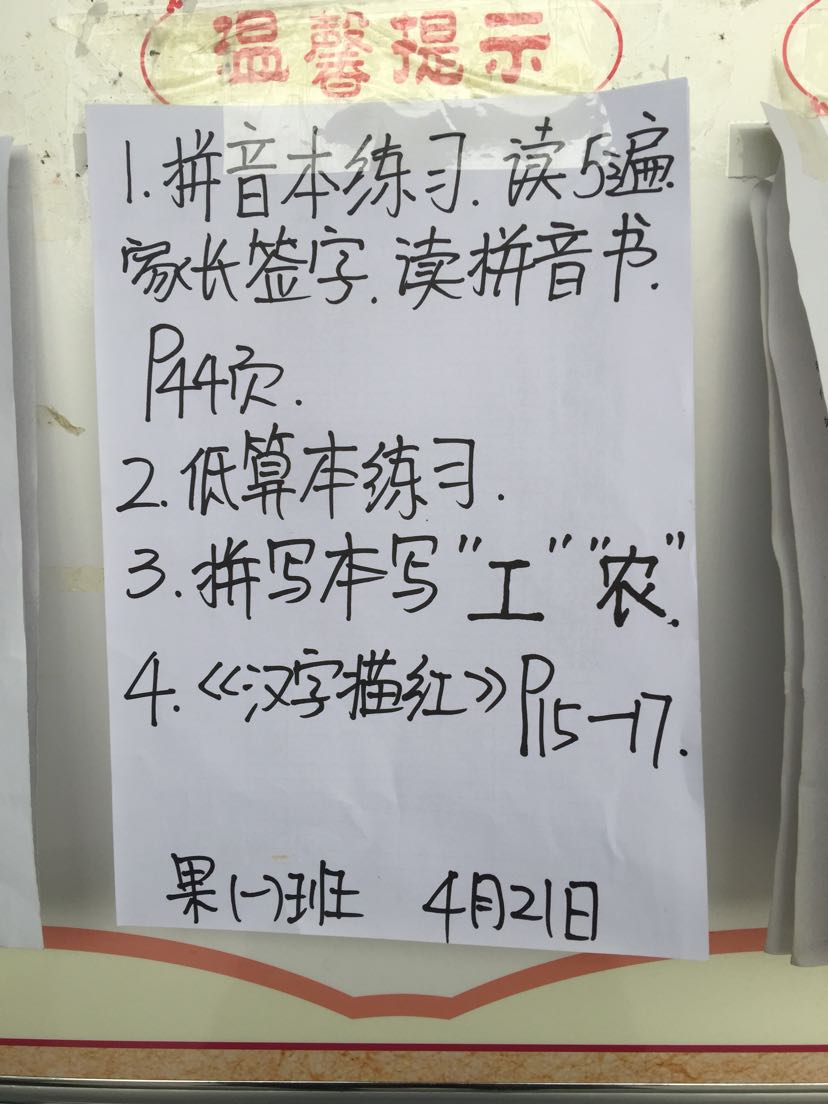 温馨提示
1.拼音本练习.读5遍.
家长签字.读拼音书.
P44页.
2.低算本练习.
3.拼写本写"工""农".
4.《汉字描红》P15-17.
果(一)班 4月21日